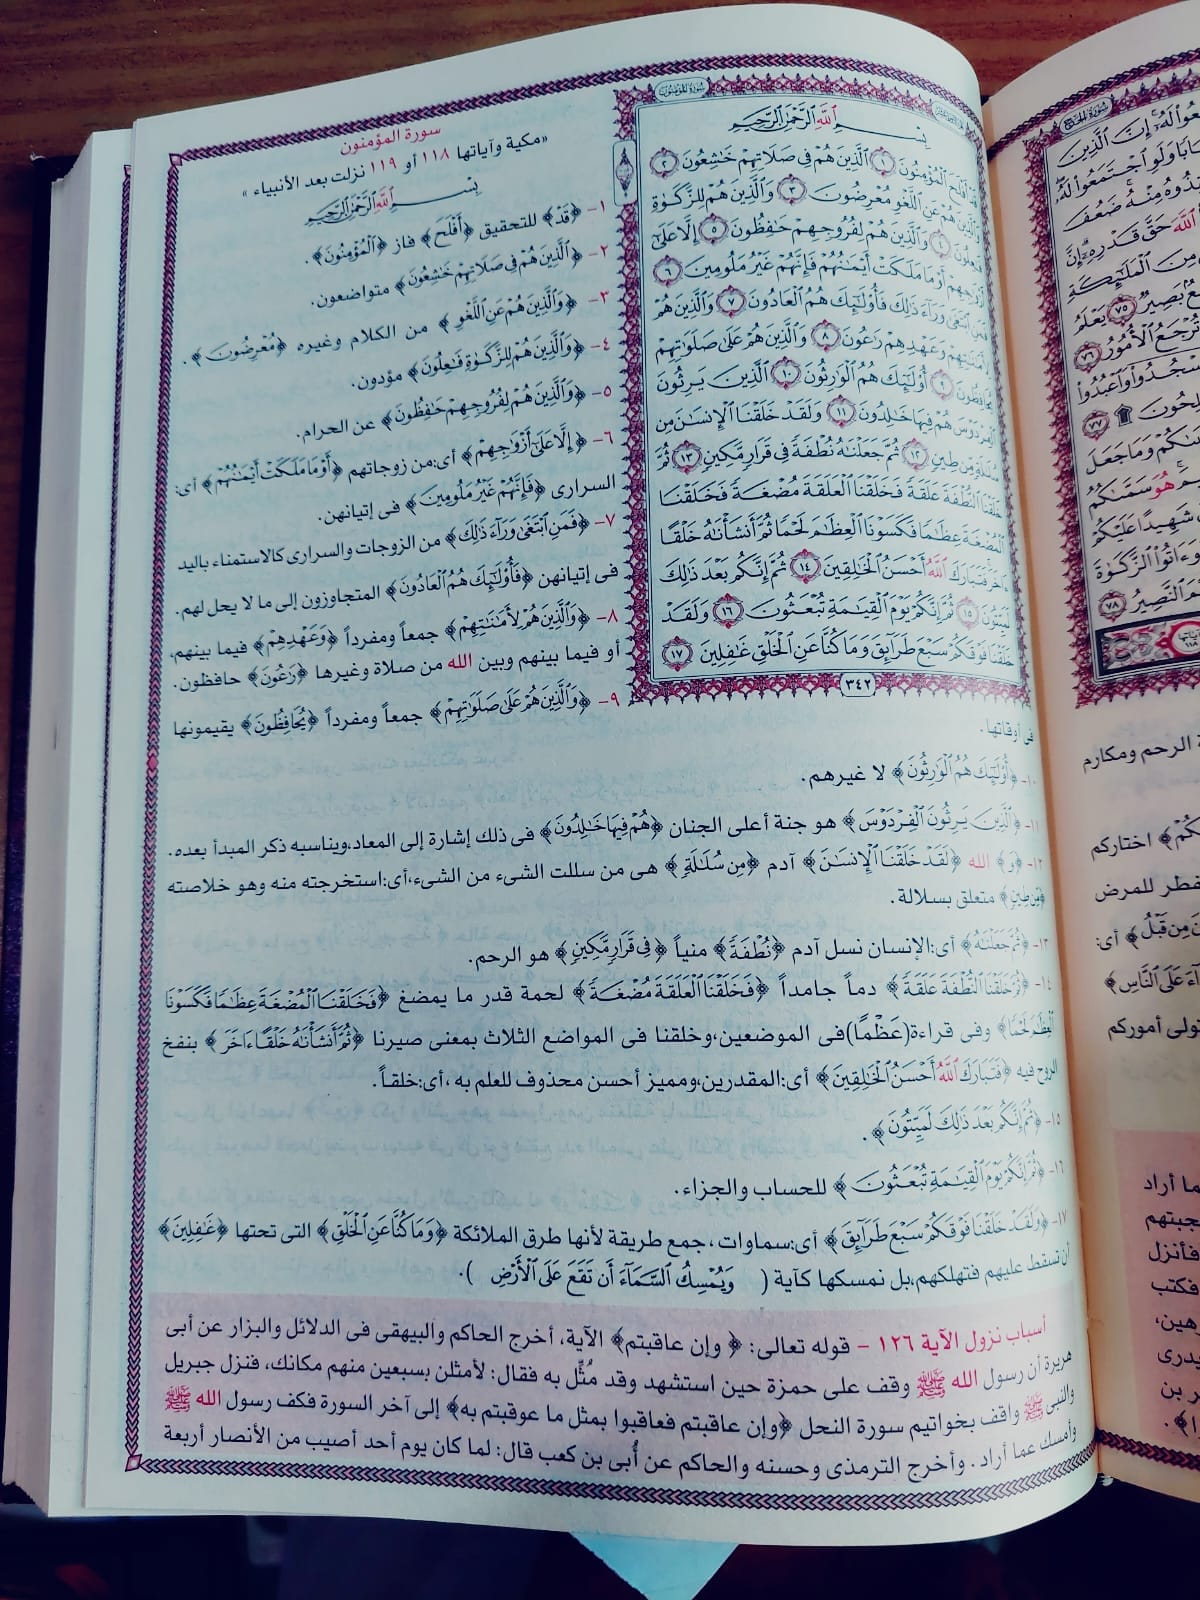 سورة المؤمنون
بسم الله الرحمن الرحيم
قد أفلح المؤمنون ١ الذين هم في صلاتهم خشعون ٢
والذين هم عن اللغو معرضون ٣ والذين هم للزكوة
فعلون ٤ والذين هم لفروجهم حفظون ٥ إلا على
أزوجهم أو ما ملكت أيمنهم فإنهم غير ملومين ٦
فمن ابتغى وراء ذلك فأولئك هم العادون ٧ والذين هم
لأمنتهم وعهدهم رعون ٨ والذين هم على صلوتهم
يحافظون ٩ أولئك هم الوارثون ١٠ الذين يرثون
الفردوس هم فيها خالدون ١١ ولقد خلقنا الإنسن من
سللة من طين ١٢ ثم جعلنه نطفة في قرار مكين ١٣ ثم
خلقنا النطفة علقة فخلقنا العلقة مضغة فخلقنا
المضغة عظما فكسونا العظم لحما ثم أنشأنه خلقا
ءاخر فتبارك الله أحسن الخلقين ١٤ ثم إنكم بعد ذلك
لميتون ١٥ ثم إنكم يوم القيمة تبعثون ١٦ ولقد
خلقنا فوقكم سبع طرائق وما كنا عن الخلق غفلين ١٧
٣٤٢
سورة المؤمنون
«مكية وآياتها ١١٨ أو ١١٩ نزلت بعد الأنبياء»
بسم الله الرحمن الرحيم
١- ﴿قد﴾ للتحقيق ﴿أفلح﴾ فاز ﴿المؤمنون﴾.
٢- ﴿الذين هم في صلاتهم خشعون﴾ متواضعون.
٣- ﴿والذين هم عن اللغو﴾ من الكلام وغيره ﴿معرضون﴾.
٤- ﴿والذين هم للزكوة فعلون﴾ مؤدون.
٥- ﴿والذين هم لفروجهم حفظون﴾ عن الحرام.
٦- ﴿إلا على أزوجهم﴾ أى: من زوجاتهم ﴿أو ما ملكت أيمنهم﴾ أى:
السرارى ﴿فإنهم غير ملومين﴾ فى إتيانهن.
٧- ﴿فمن ابتغى وراء ذلك﴾ من الزوجات والسرارى كالاستمناء باليد
فى إتيانهن ﴿فأولئك هم العادون﴾ المتجاوزون إلى ما لا يحل لهم.
٨- ﴿والذين هم لأمنتهم﴾ جمعاً ومفرداً ﴿وعهدهم﴾ فيما بينهم،
أو فيما بينهم وبين الله من صلاة وغيرها ﴿رعون﴾ حافظون.
٩- ﴿والذين هم على صلوتهم﴾ جمعاً ومفرداً ﴿يحافظون﴾ يقيمونها
فى أوقاتها.
١٠- ﴿أولئك هم الوارثون﴾ لا غيرهم.
١١- ﴿الذين يرثون الفردوس﴾ هو جنة أعلى الجنان ﴿هم فيها خالدون﴾ فى ذلك إشارة إلى المعاد، ويناسبه ذكر المبدأ بعده.
١٢- ﴿و﴾ الله ﴿لقد خلقنا الإنسن﴾ آدم ﴿من سللة﴾ هى من سللت الشىء من الشىء، أى: استخرجته منه وهو خلاصته
﴿من طين﴾ متعلق بسلالة.
١٣- ﴿ثم جعلنه﴾ أى: الإنسان نسل آدم ﴿نطفة﴾ منياً ﴿في قرار مكين﴾ هو الرحم.
١٤- ﴿ثم خلقنا النطفة علقة﴾ دماً جامداً ﴿فخلقنا العلقة مضغة﴾ لحمة قدر ما يمضغ ﴿فخلقنا المضغة عظما فكسونا
العظم لحما﴾ وفى قراءة (عظماً) فى الموضعين، وخلقنا فى المواضع الثلاث بمعنى صيرنا ﴿ثم أنشأنه خلقا ءاخر﴾ بنفخ
الروح فيه ﴿فتبارك الله أحسن الخلقين﴾ أى: المقدرين، ومميز أحسن محذوف للعلم به، أى: خلقاً.
١٥- ﴿ثم إنكم بعد ذلك لميتون﴾.
١٦- ﴿ثم إنكم يوم القيمة تبعثون﴾ للحساب والجزاء.
١٧- ﴿ولقد خلقنا فوقكم سبع طرائق﴾ أى: سماوات، جمع طريقة لأنها طرق الملائكة ﴿وما كنا عن الخلق﴾ التى تحتها ﴿غفلين﴾
أن تسقط عليهم فتهلكهم، بل نمسكها كآية (ويمسك السماء أن تقع على الأرض).
أسباب نزول الآية ١٢٦ - قوله تعالى: ﴿وإن عاقبتم﴾ الآية، أخرج الحاكم والبيهقى فى الدلائل والبزار عن أبى
هريرة أن رسول الله ﷺ وقف على حمزة حين استشهد وقد مُثِّل به فقال: لأمثلن بسبعين منهم مكانك، فنزل جبريل
والنبى ﷺ واقف بخواتيم سورة النحل ﴿وإن عاقبتم فعاقبوا بمثل ما عوقبتم به﴾ إلى آخر السورة فكف رسول الله ﷺ
وأمسك عما أراد. وأخرج الترمذى وحسنه والحاكم عن أُبى بن كعب قال: لما كان يوم أحد أصيب من الأنصار أربعة
سورة الحج
إن الذين
ولو اجتمعوا له
منه ضعف
الله حق قدره إن
من الملئكة
بصير ٧٥ يعلم
ترجع الأمور ٧٦
واعبدوا
٧٧
وما جعل
هو سمىكم
شهيدا عليكم
وءاتوا الزكوة
النصير ٧٨
الرحم ومكارم
اختاركم
للمرض
من قبل﴾ أى:
على الناس﴾
تولى أموركم
ما أراد
فأنزل
فكتب
يدرى
بن